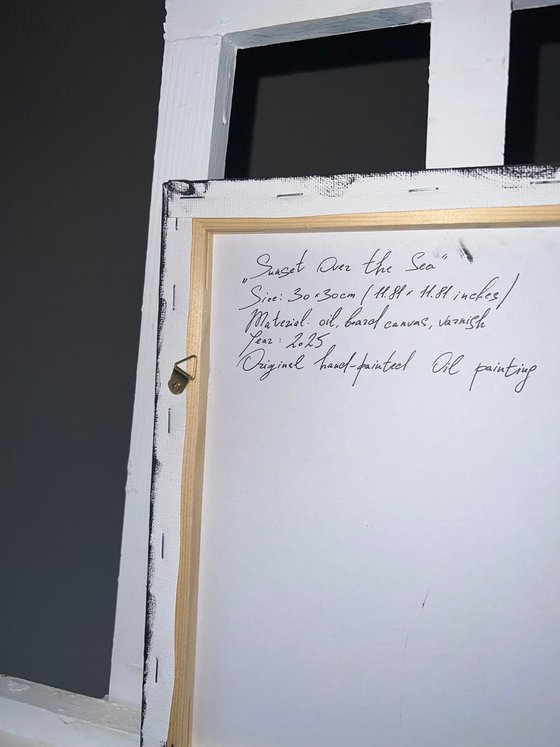 „Sunset Over the Sea"
Size: 30×30cm / 11.81 × 11.81 inches/
Material: oil, board canvas, varnish
Year: 2025
Original hand-painted Oil painting